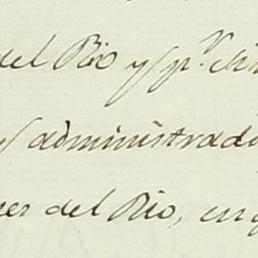 del Rio y pr. Sin
y administrado
ner del Rio, en